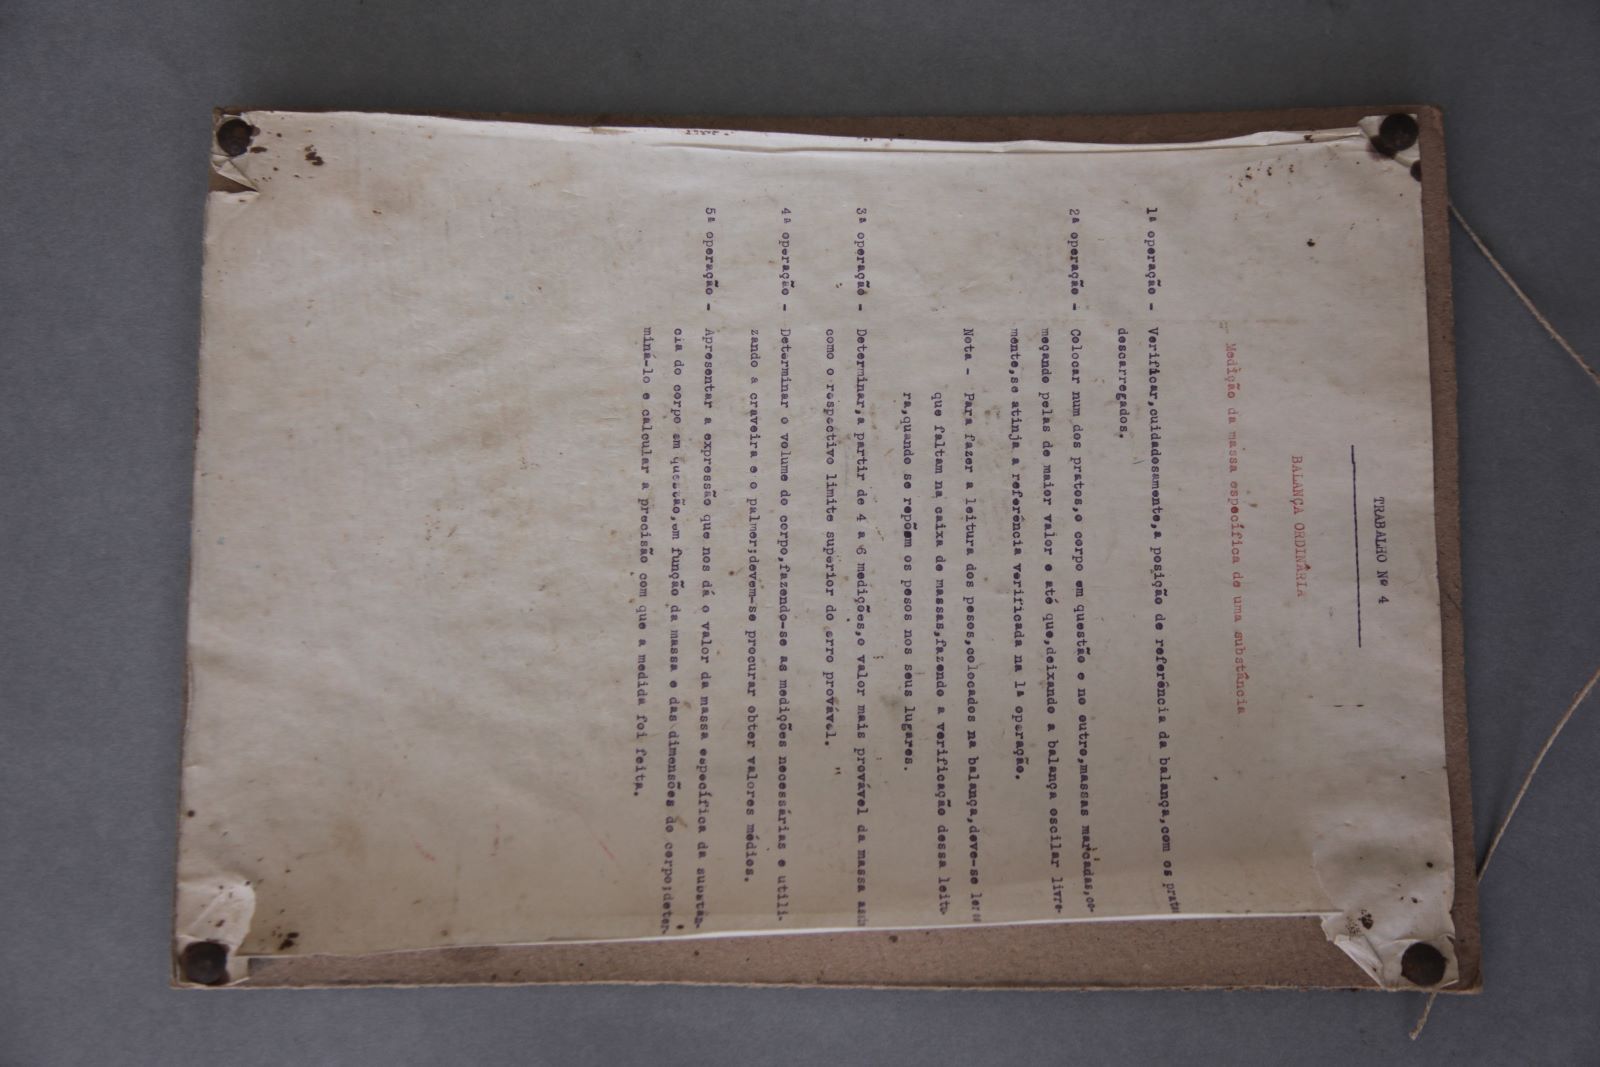 TRABALHO Nº 4
BALANÇA ORDINÁRIA
Medição da massa específica de uma substância
1ª operação - Verificar,cuidadosamente,a posição de referência da balança,com os pratos
descarregados.
2ª operação - Colocar num dos pratos,o corpo em questão e no outro,massas marcadas,co-
meçando pelas de maior valor e até que,deixando a balança oscilar livre-
mente,se atinja a referência verificada na 1ª operação.
Nota - Para fazer a leitura dos pesos,colocados na balança,deve-se ler os
que faltam na caixa de massas,fazendo a verificação dessa leitu-
ra,quando se repõem os pesos nos seus lugares.
3ª operação - Determinar,a partir de 4 a 6 medições,o valor mais provável da massa assim
como o respectivo limite superior do erro provável.
4ª operação - Determinar o volume do corpo,fazendo-se as medições necessárias e utili-
zando a craveira e o palmer;devem-se procurar obter valores médios.
5ª operação - Apresentar a expressão que nos dá o valor da massa específica da substân-
cia do corpo em questão,em função da massa e das dimensões do corpo;deter-
miná-lo e calcular a precisão com que a medida foi feita.